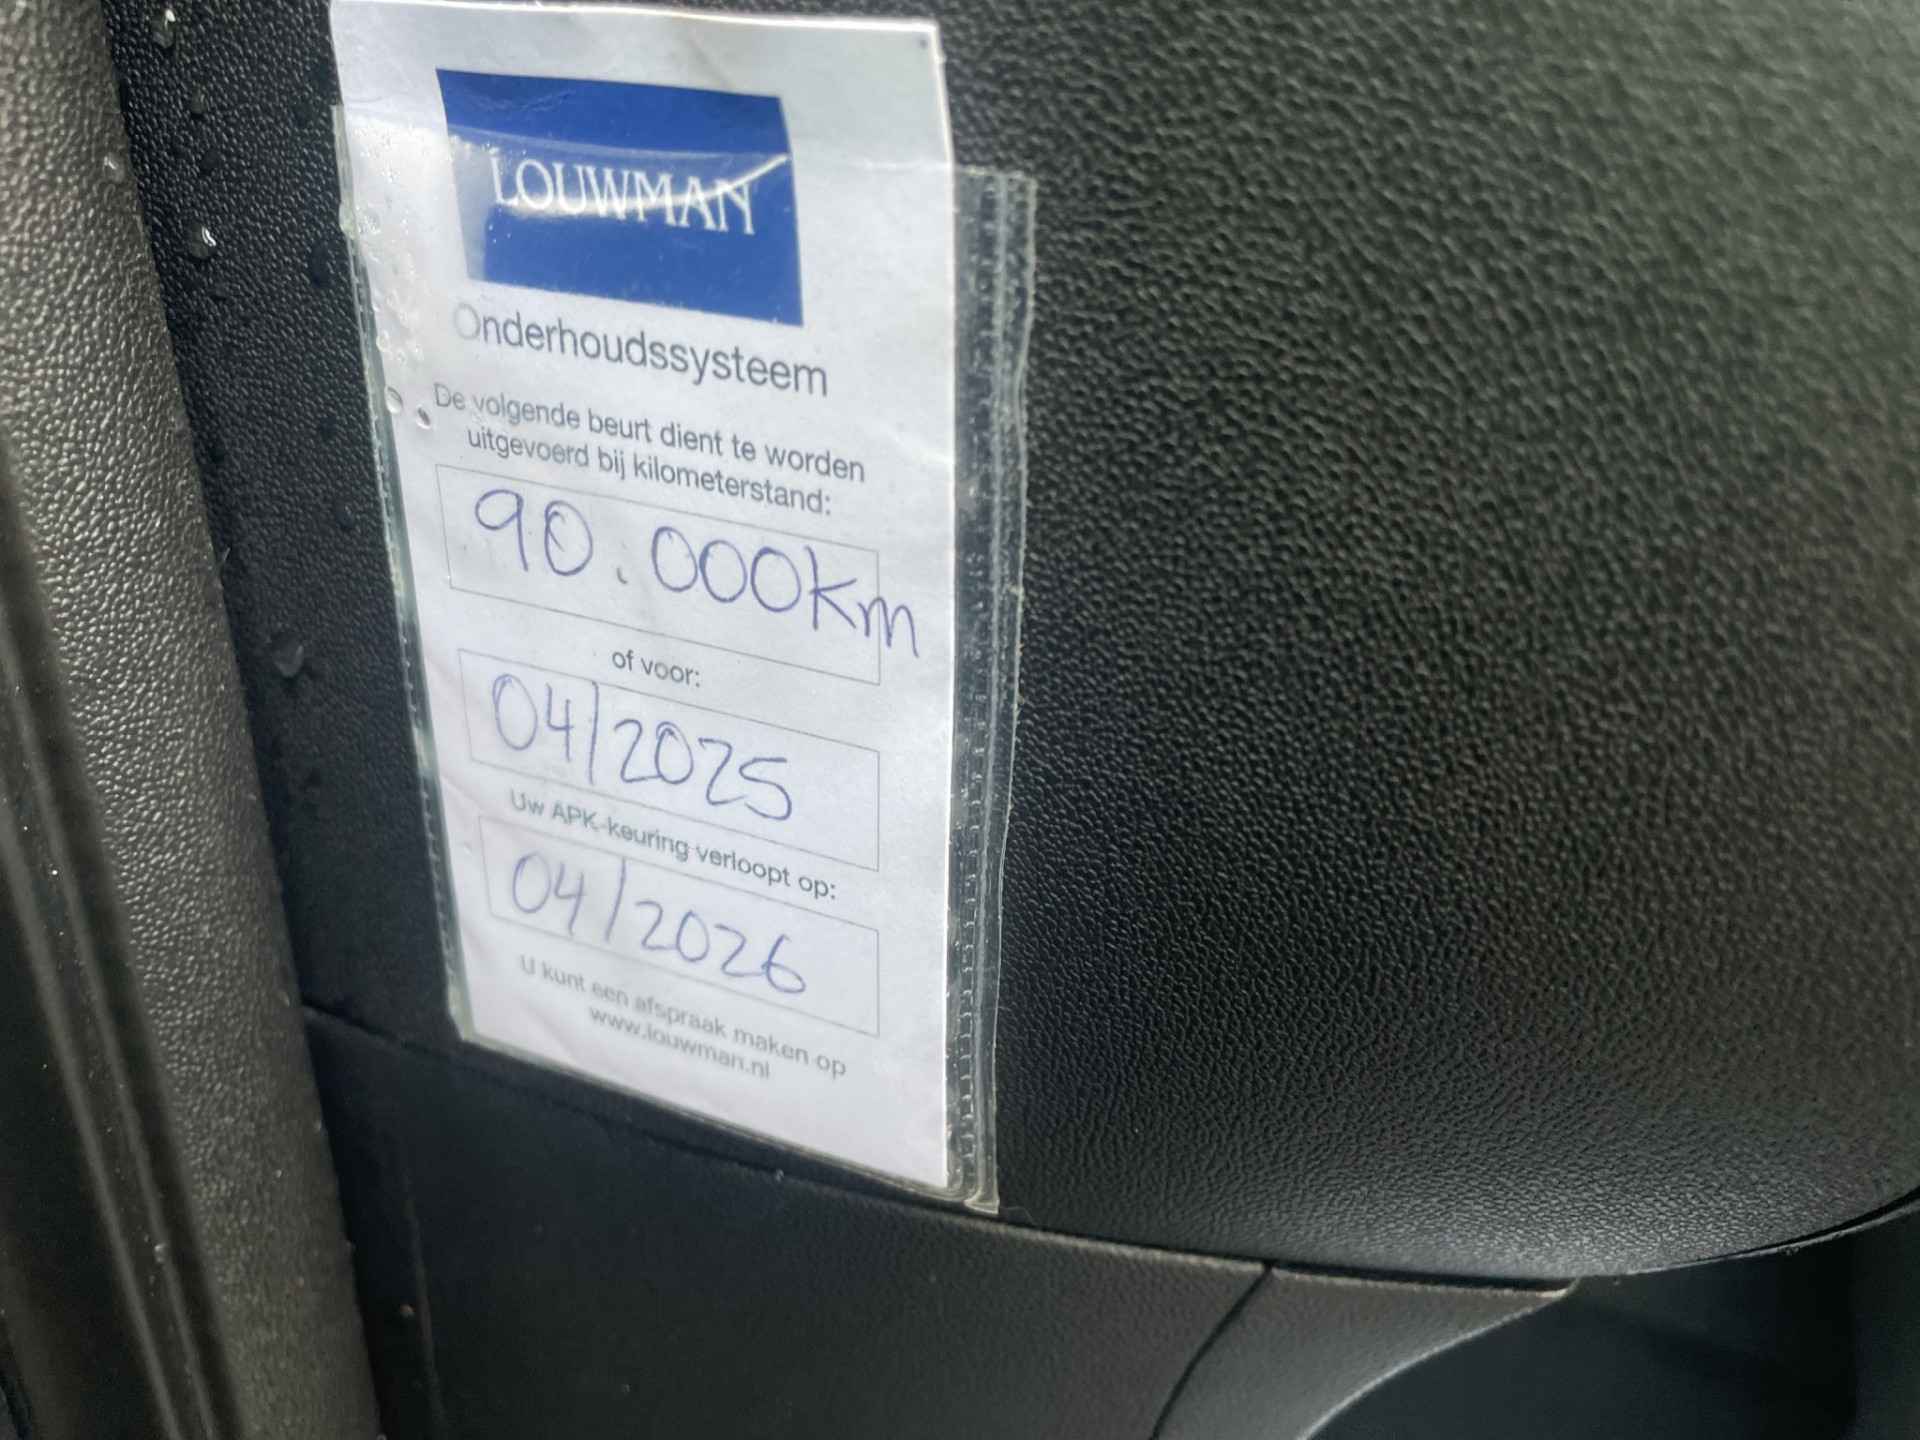 LOUWMAN
Onderhoudssysteem
De volgende beurt dient te worden
uitgevoerd bij kilometerstand:
90.000km
of voor:
04/2025
Uw APK-keuring verloopt op:
04/2026
U kunt een afspraak maken op
www.louwman.nl